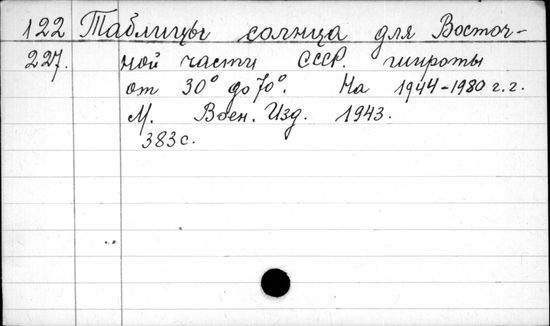 122 Таблицы солнца для Восточ-
227. ной части СССР. широты
от 30° до 70°. На 1944-1980 г.г.
М. Воен. Изд. 1943.
383с.